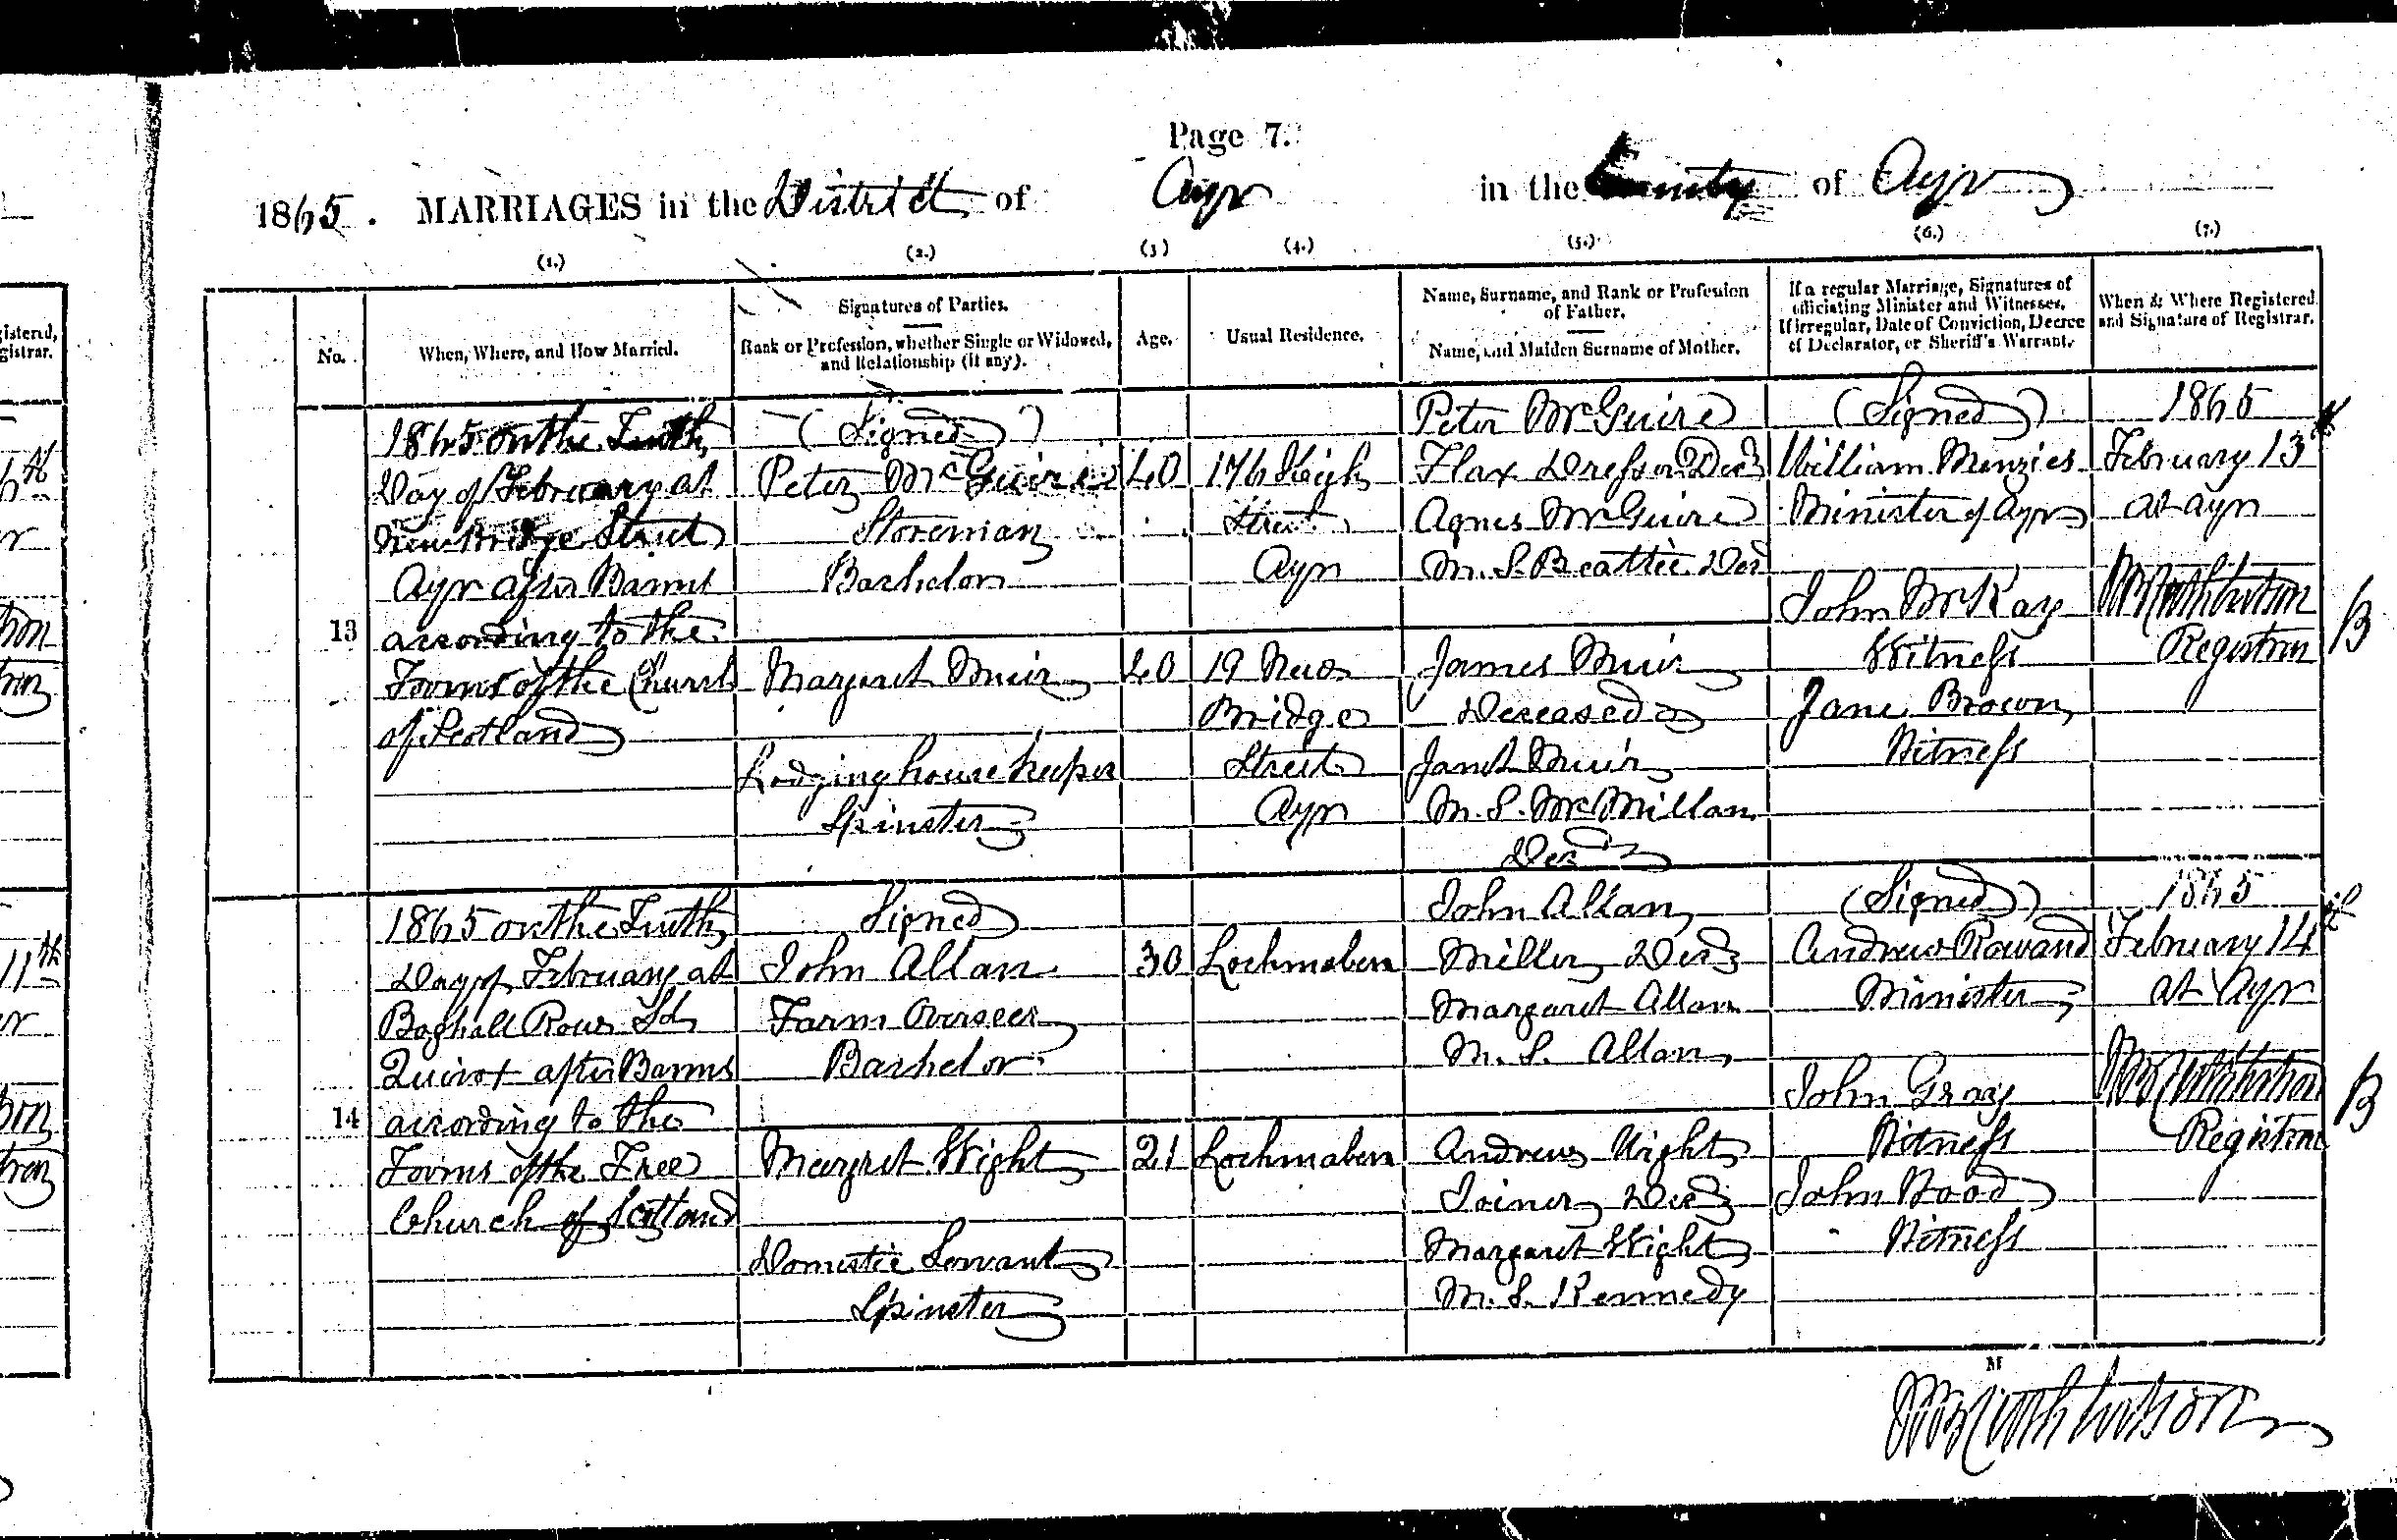 Page 7.
1865. MARRIAGES in the District of Ayr in the County of Ayr
(1.) (2.) (3) (4.) (5.) (6.) (7.)
No.
When, Where, and How Married.
Signatures of Parties.
Rank or Profession, whether Single or Widowed,
and Relationship (if any).
Age.
Usual Residence.
Name, Surname, and Rank or Profession
of Father.
Name, and Maiden Surname of Mother.
If a regular Marriage, Signatures of
officiating Minister and Witnesses.
If irregular, Date of Conviction, Decree
of Declarator, or Sheriff's Warrant.
When & Where Registered,
and Signature of Registrar.
13
1865 on the Tenth
Day of February at
New Bridge Street
Ayr after Banns
according to the
Forms of the Church
of Scotland
(Signed)
Peter McGuire
Storeman
Bachelor
Margaret Muir
Lodging house keeper
Spinster
40
40
176 High
Street
Ayr
19 New
Bridge
Street
Ayr
Peter McGuire
Flax Dresser Decd
Agnes McGuire
M.S. Beattie Decd
James Muir
Deceased
Janet Muir
M.S. McMillan
Decd
(Signed)
William Menzies
Minister of Ayr
John McKay
Witness
Jane Brown
Witness
1865
February 13th
at Ayr
Registrar
B
14
1865 on the Tenth
Day of February at
Boghall Row St
Quivox after Banns
according to the
Forms of the Free
Church of Scotland
Signed
John Allan
Farm Overseer
Bachelor
Margret Wight
Domestic Servant
Spinster
30
21
Lochmaben
Lochmaben
John Allan
Miller Decd
Margaret Allan
M.S. Allan
Andrew Wight
Joiner Decd
Margaret Wight
M.S. Kennedy
(Signed)
Andrew Rowand
Minister
John Gray
Witness
John Wood
Witness
1865
February 14th
at Ayr
Registrar
B
M